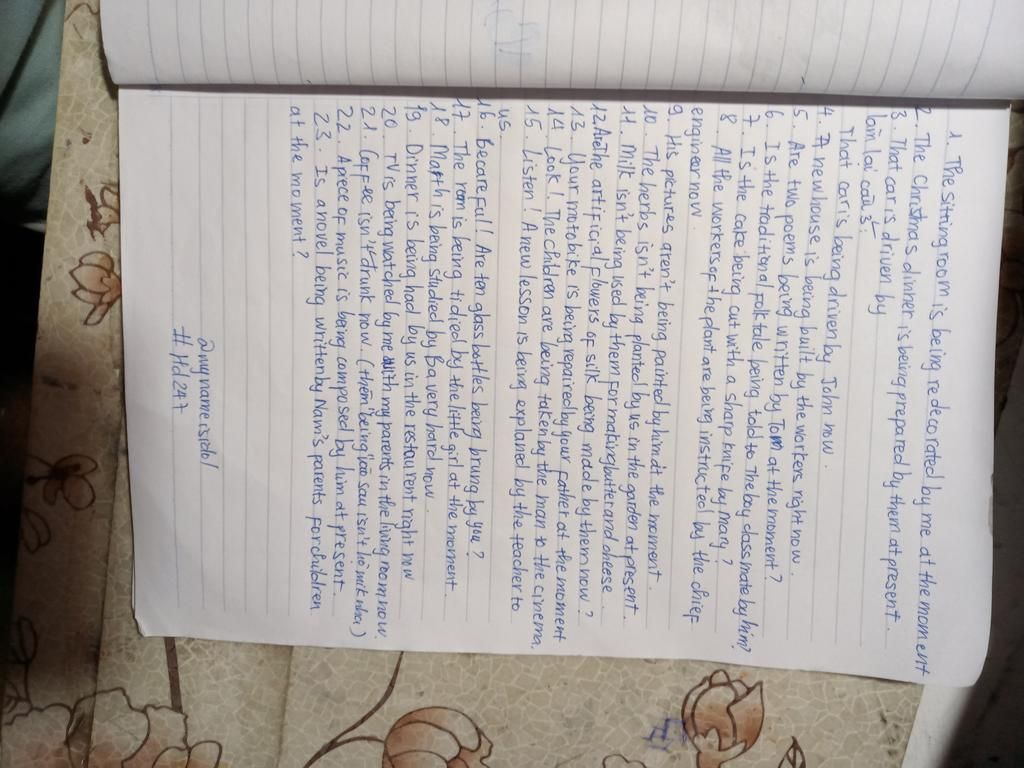 1. The sitting room is being redecorated by me at the moment
2. The Christmas dinner is being prepared by them at present.
3. That car is driven by
làm lại câu 3:
That car is being driven by John now.
4 A new house is being built by the workers right now.
5. Are two poems being written by Tom at the moment?
6. Is the traditional folk tale being told to the boy classmate by him?
7. Is the cake being cut with a sharp knife by Mary?
8. All the workers of the plant are being instructed by the chief
engineer now.
9 His pictures aren't being painted by him at the moment.
10. The herbs isn't being planted by us in the garden at present.
11. Milk isn't being used by them for making butter and cheese.
12. Are the artificial flowers of silk being made by them now?
13. Your motobike is being repaired by your father at the moment
14 Look! The children are being taken by the man to the cinema.
15. Listen! A new lesson is being explained by the teacher to
us
16. Becareful! Are ten glass bottles being brung by you?
17. The room is being tidied by the little girl at the moment.
18. Math is being studied by Ba very hard now.
19. Dinner is being had by us in the restaurent right now
20 TV is being watched by me with my parents in the living room now.
21. Coffee isn't drunk now. (thêm "being" ở sau isn't hộ mik nha)
22. A piece of music is being composed by him at present
23. Is a novel being written by Nam's parents for children
at the moment?
@mynameisdol
#Hd247